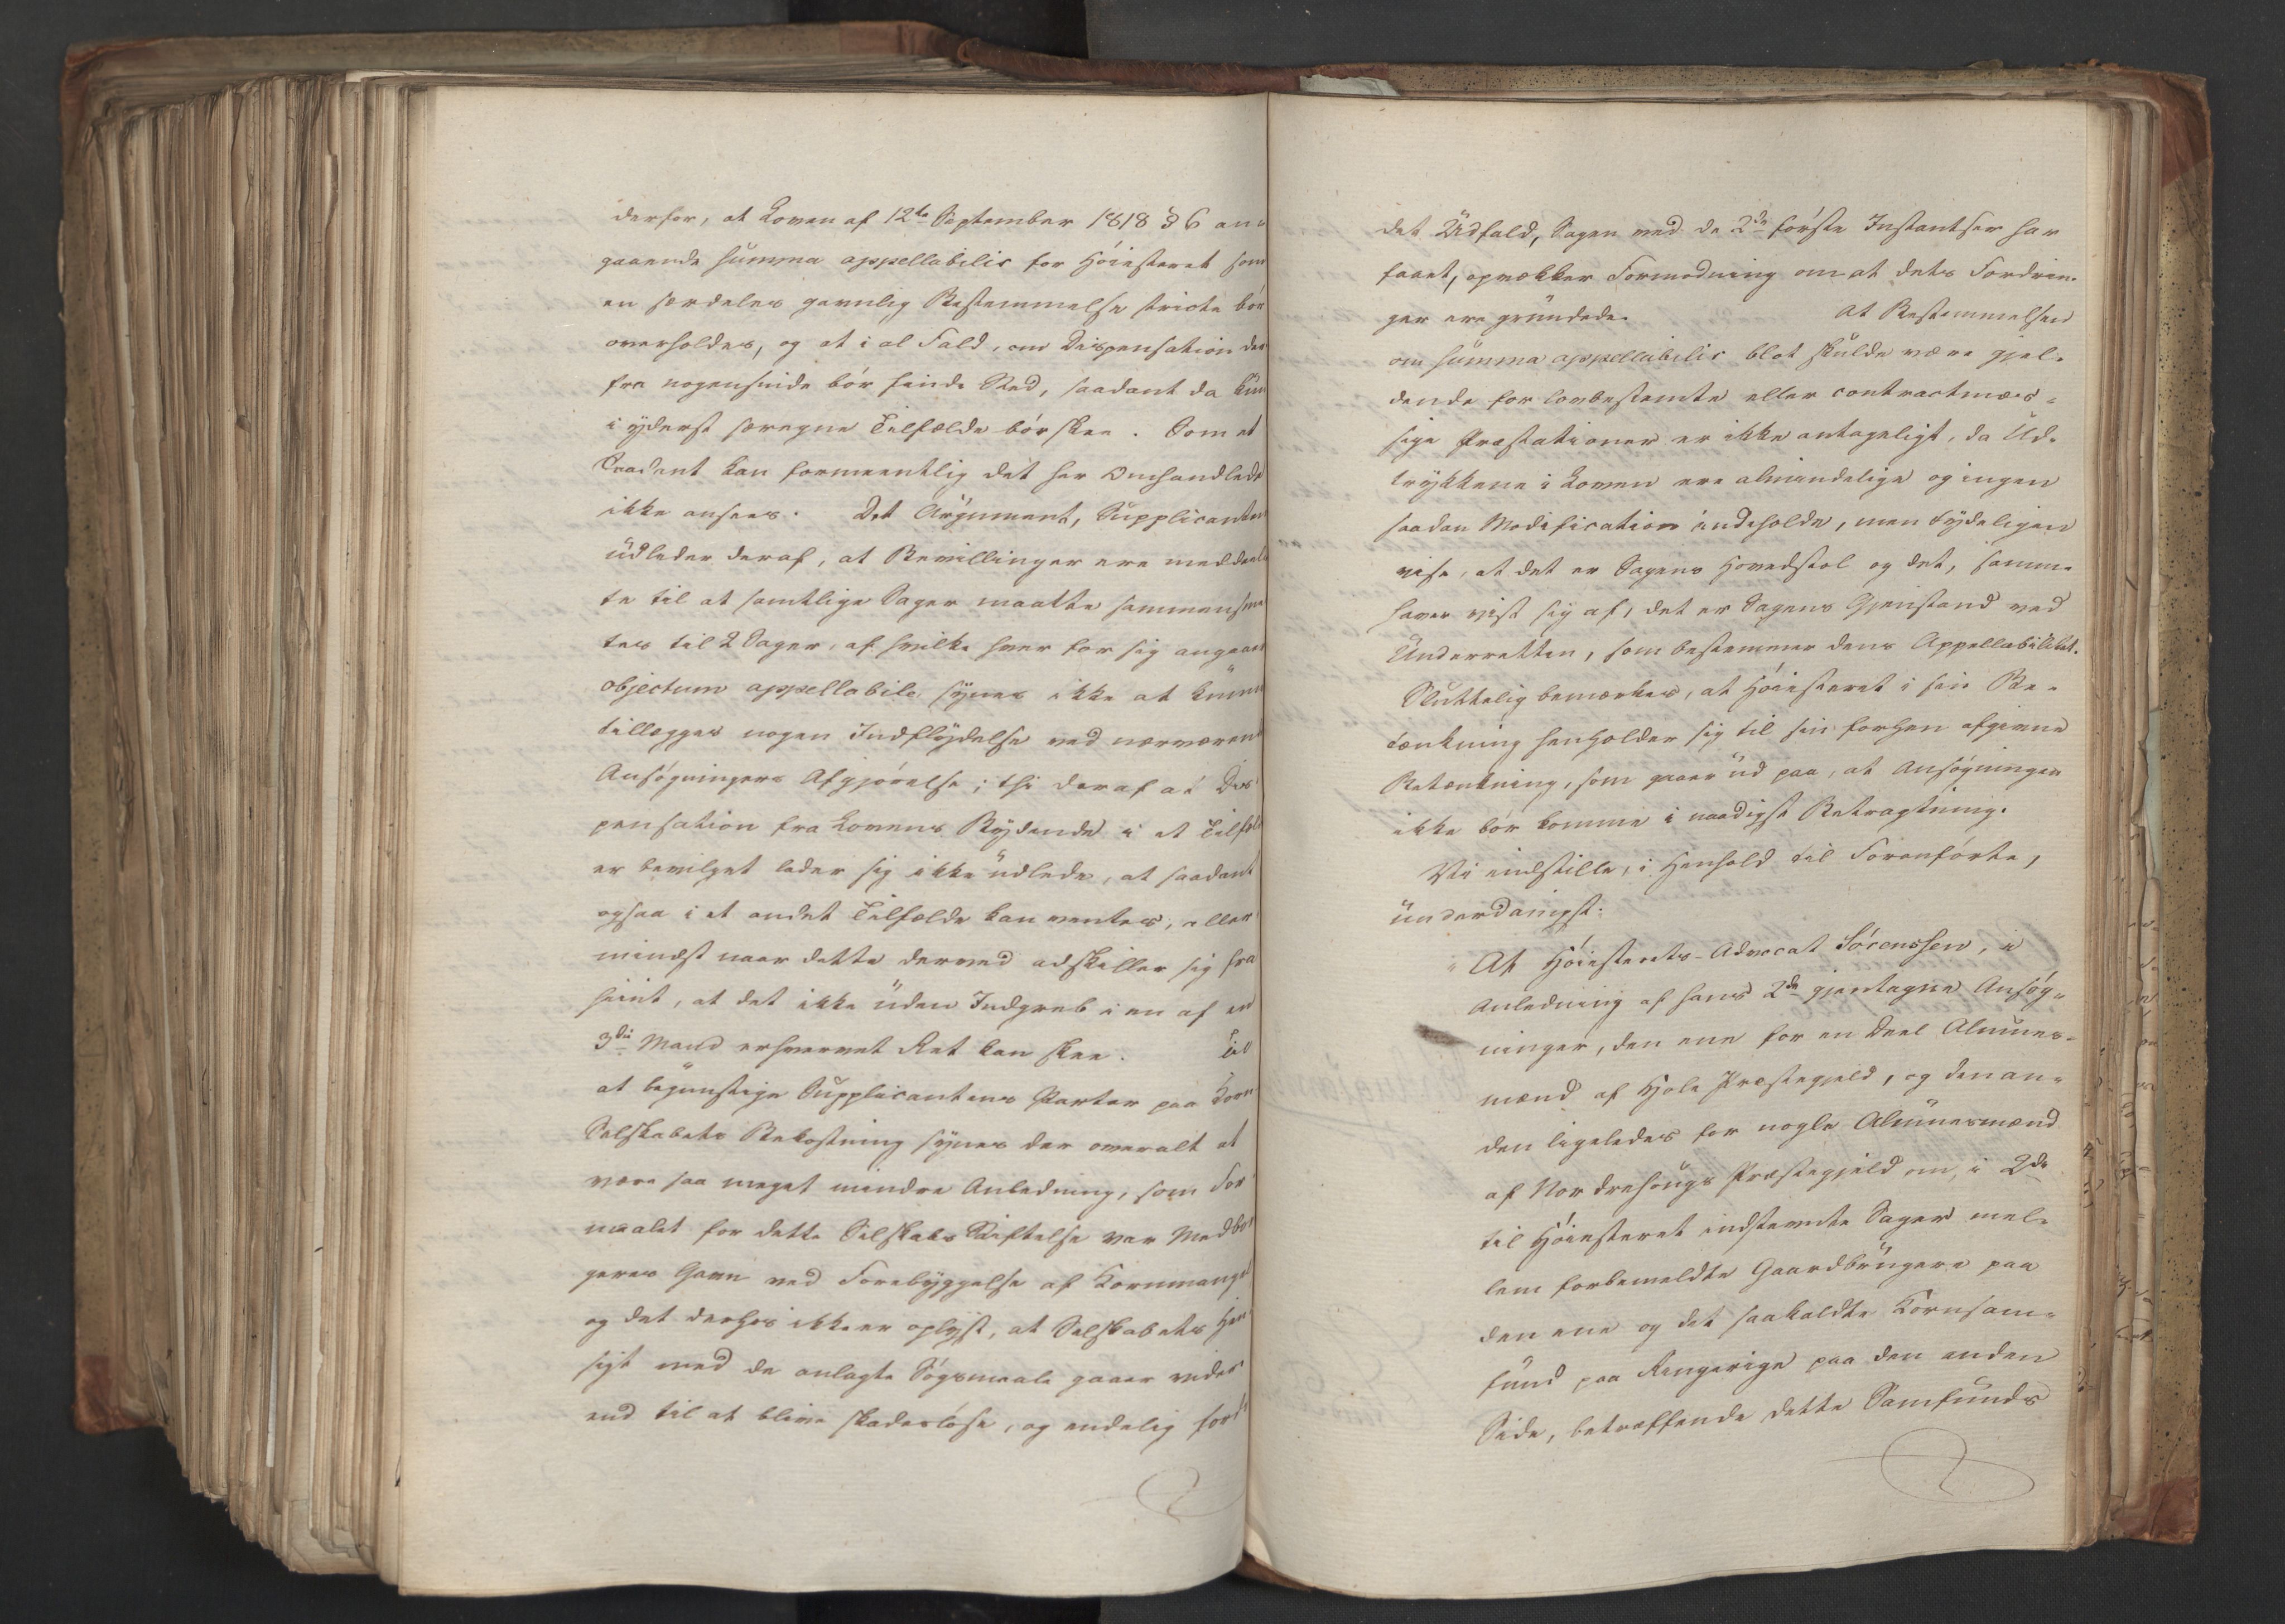 derfor, at Loven af 12te September 1818 § 6 an-
gaaende summa appellabilis for Höiesteret som
en særdeles gavnlig Bestemmelse stricte bör
overholdes, og at i al Fald, om Dispensation der
fra nogensinde bör finde Sted, saadant da kun
i yderst særegne Tilfælde bör skee. Som et
saadant kan formeentlig det her Omhandlede
ikke ansees. Det Argument, Supplicanten
udleder deraf, at Bevillinger ere meddeel
te til at samtlige Sager maatte sammensæt
tes til 2 Sager, af hvilke hver for sig angaaer
objectum appellabile synes ikke at kunne
tillægges nogen Indflydelse ved nærværend
Ansögningers Afgjörelse; thi deraf at Dis-
pensation fra Lovens Bydende i et Tilfæld
er bevilget lader sig ikke udlede, at saadant
ogsaa i et andet Tilfælde kan ventes, aller
mindst naar dette derved adskiller sig fra
hiint, at det ikke uden Indgreb i en af en
3die Mand erhvervet Ret kan skee. Til
at begunstige Supplicantens Parter paa Korn
Selskabets Bekostning synes der overalt at
være saa meget mindre Anledning, som For
maalet for dette Selskabs Stiftelse var Medbor
geres Gavn ved Forebyggelse af Kornmangel
og det derhos ikke er oplyst, at Selskabets Hen
sigt med de anlagte Sögsmaale gaaer videre
end til at blive skadeslöse, og endelig fordi
det Udfald, Sagen ved de 2de förste Instantser har
faaet, opvækker Formodning om at dets Fordrin-
ger ere grundede. At Bestemmelsen
om summa appellabilis blot skulde være gjel-
dende for lovbestemte eller contractmæs-
sige Præstationer er ikke antageligt, da Ud-
trykkene i Loven ere almindelige og ingen
saadan Modification indeholde, men tydeligen
vise, at det er Sagens Hovedstol og det, samme
haver rejst sig af, det er Sagens Gjenstand ved
Underretten, som bestemmer dens Appellabilitet.
Sluttelig bemærkes, at Höiesteret i sin Be-
tænkning henholder sig til sin forhen afgivne
Betænkning, som gaaer ud paa, at Ansögningen
ikke bör komme i naadigst Betragtning.
Vi indstille, i Henhold til Foranförte,
underdanigst:
"At Höiesterets-Advocat Sörenssen, i
Anledning af hans 2de gjentagne Ansög-
ninger, den ene for en Deel Almues-
mænd af Hole Præstegjeld, og den an-
den ligeledes for nogle Almuesmænd
af Nordrehougs Præstegjeld om, i 2de
til Höiesteret indstevnte Sager mel-
lem forbemeldte Gaardbrugere paa
den ene og det saakaldte Kornsam-
fund paa Ringerige paa den anden
Side, betræffende dette Samfunds